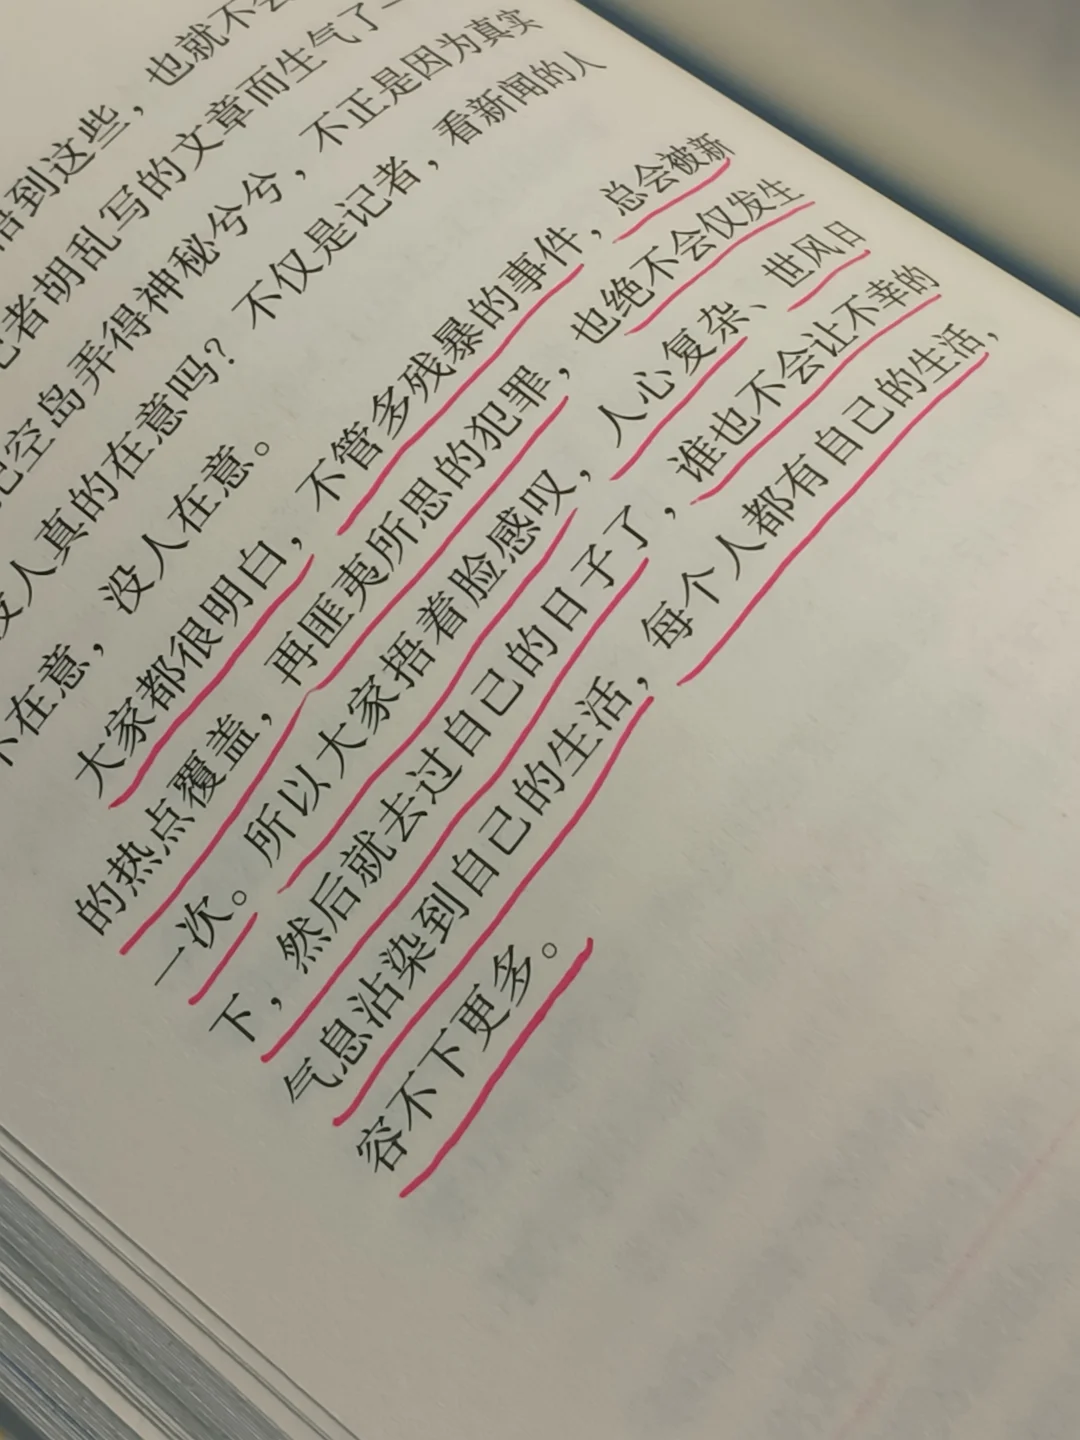 悟到这些，也就不会
者胡乱写的文章而生气了
空岛弄得神秘兮兮，不正是因为真实
人真的在意吗？不仅是记者，看新闻的人
不在意，没人在意。
大家都很明白，不管多残暴的事件，总会被新
的热点覆盖，再匪夷所思的犯罪，也绝不会仅发生
一次。所以大家捂着脸感叹，人心复杂、世风日
下，然后就去过自己的日子了，谁也不会让不幸的
气息沾染到自己的生活，每个人都有自己的生活，
容不下更多。